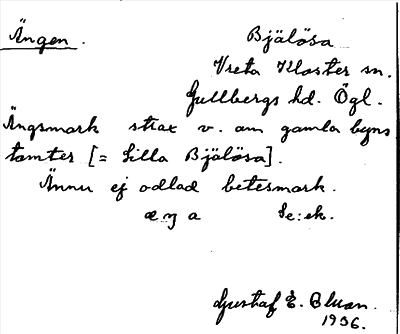 Ängen.
Bjälösa
Vreta Kloster sn.
Gullbergs hd. Ögl.
Ängsmark strax v. om gamla byns
tomter [= Lilla Bjälösa].
Ännu ej odlad betesmark.
Se: ek.
Gustaf E. Bluan.
1936.